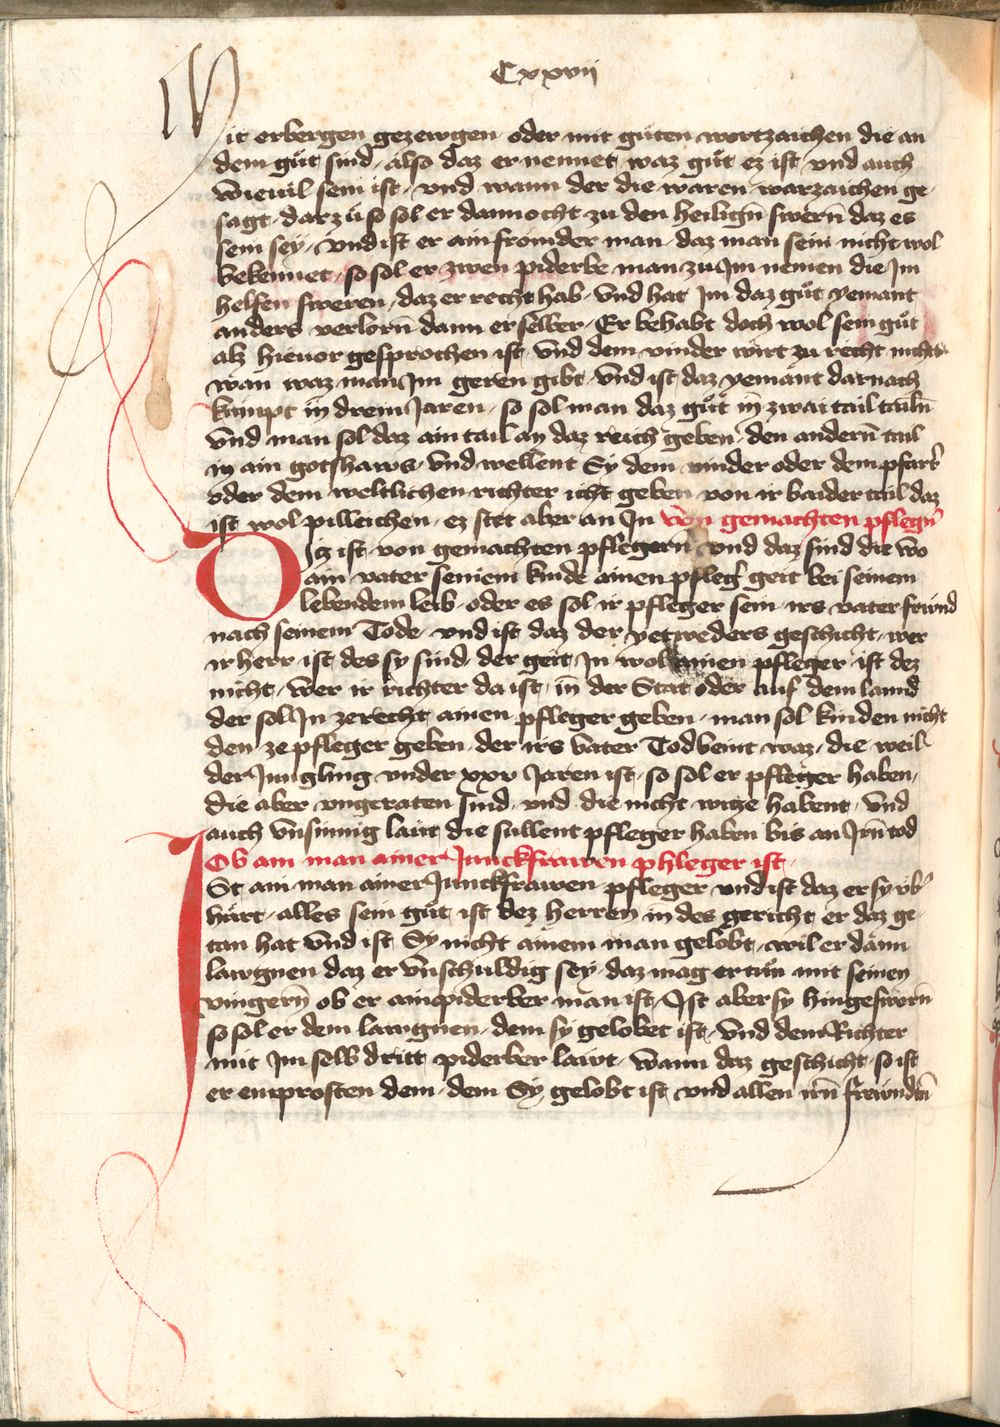 Cxxvii
Mit erbergen gezewgen oder mit gůten wortzaichen die an
dem gůt sind, also daz er nennet waz gůt ez ist vnd auch
wieuil sein ist, vnd wann der die waren warzaichen ge-
sagt, darzů so sol er dannocht zu den heiligñ swerñ daz es
sein sey, vnd ist er ain fromder man, daz man sein nicht wol
bekennet, so sol er zwen piderbe man zu Im nemen die Im
helfen sweren, daz er recht hab, vnd hat Im daz gůt yemant
anders verlorñ dann er selber, Er behabt doch wol sein gůt
alz hieuor gesprochen ist, vnd dem vinder wirt zu recht nichts
wan waz man Im geren gibt, vnd ist daz yemant darnach
kumpt in drein Jaren, so sol man daz gůt in zwai tail tailñ
vnd man sol daz ain tail an daz reich geben, den anderñ tail
in ain gotshaws, vnd wellent Sy dem vinder oder dem pfarr̉
oder dem weltlichen richter icht geben von ir baider tail daz
ist wol pilleichen, ez stet aber an In Von gemachten pflegñ
Diz ist von gemachten pflegerñ vnd daz sind die wo
ain vater seniem kinde ainen pfleg̉ geit bei seinem
lebendem leib, oder es sol ir pfleger sein irs vater frewnd
nach seinem Tode, vnd ist daz der yetweders geschicht, wer
ir herr ist, des sy sind, der geit In wol ainen pfleger, ist dez
nicht, wer ir richter da ist, in der Stat oder auf dem lannd
der sol In zerecht ainen pfleger geben, man sol kinden nicht
den ze pfleger geben, der irs vater Todveint waz, die weil
der Jungling vnder xxv Jaren ist, so sol er pfleger haben,
die aber vngeraten sind, vnd die nicht wicze habent, vnd
auch vnsinnig lawt die sullent pfleger haben bis an Irñ tod
Ob ain man ainer Junckfrawen phleger ist
Ist ain man ainer Junckfrawen pfleger vnd ist daz er sy vb̉
hůrt, alles sein gůt ist dez herren in des gericht er daz ge-
tan hat vnd ist Sy nicht ainem man gelobt, wil er dann
lawgnen daz er vnschuldig sey, daz mag er tůn mit seinen
vingerñ ob er ain piderber man ist, Ist aber sy hingesworñ
so sol er dem lawgnen, dem sy gelobet ist, vnd dem Richter
mit Im selb dritt piderber lawt, wann daz geschicht, so ist
er emprosten dem, dem Sy gelobt ist vnd allen irñ frewndeñ